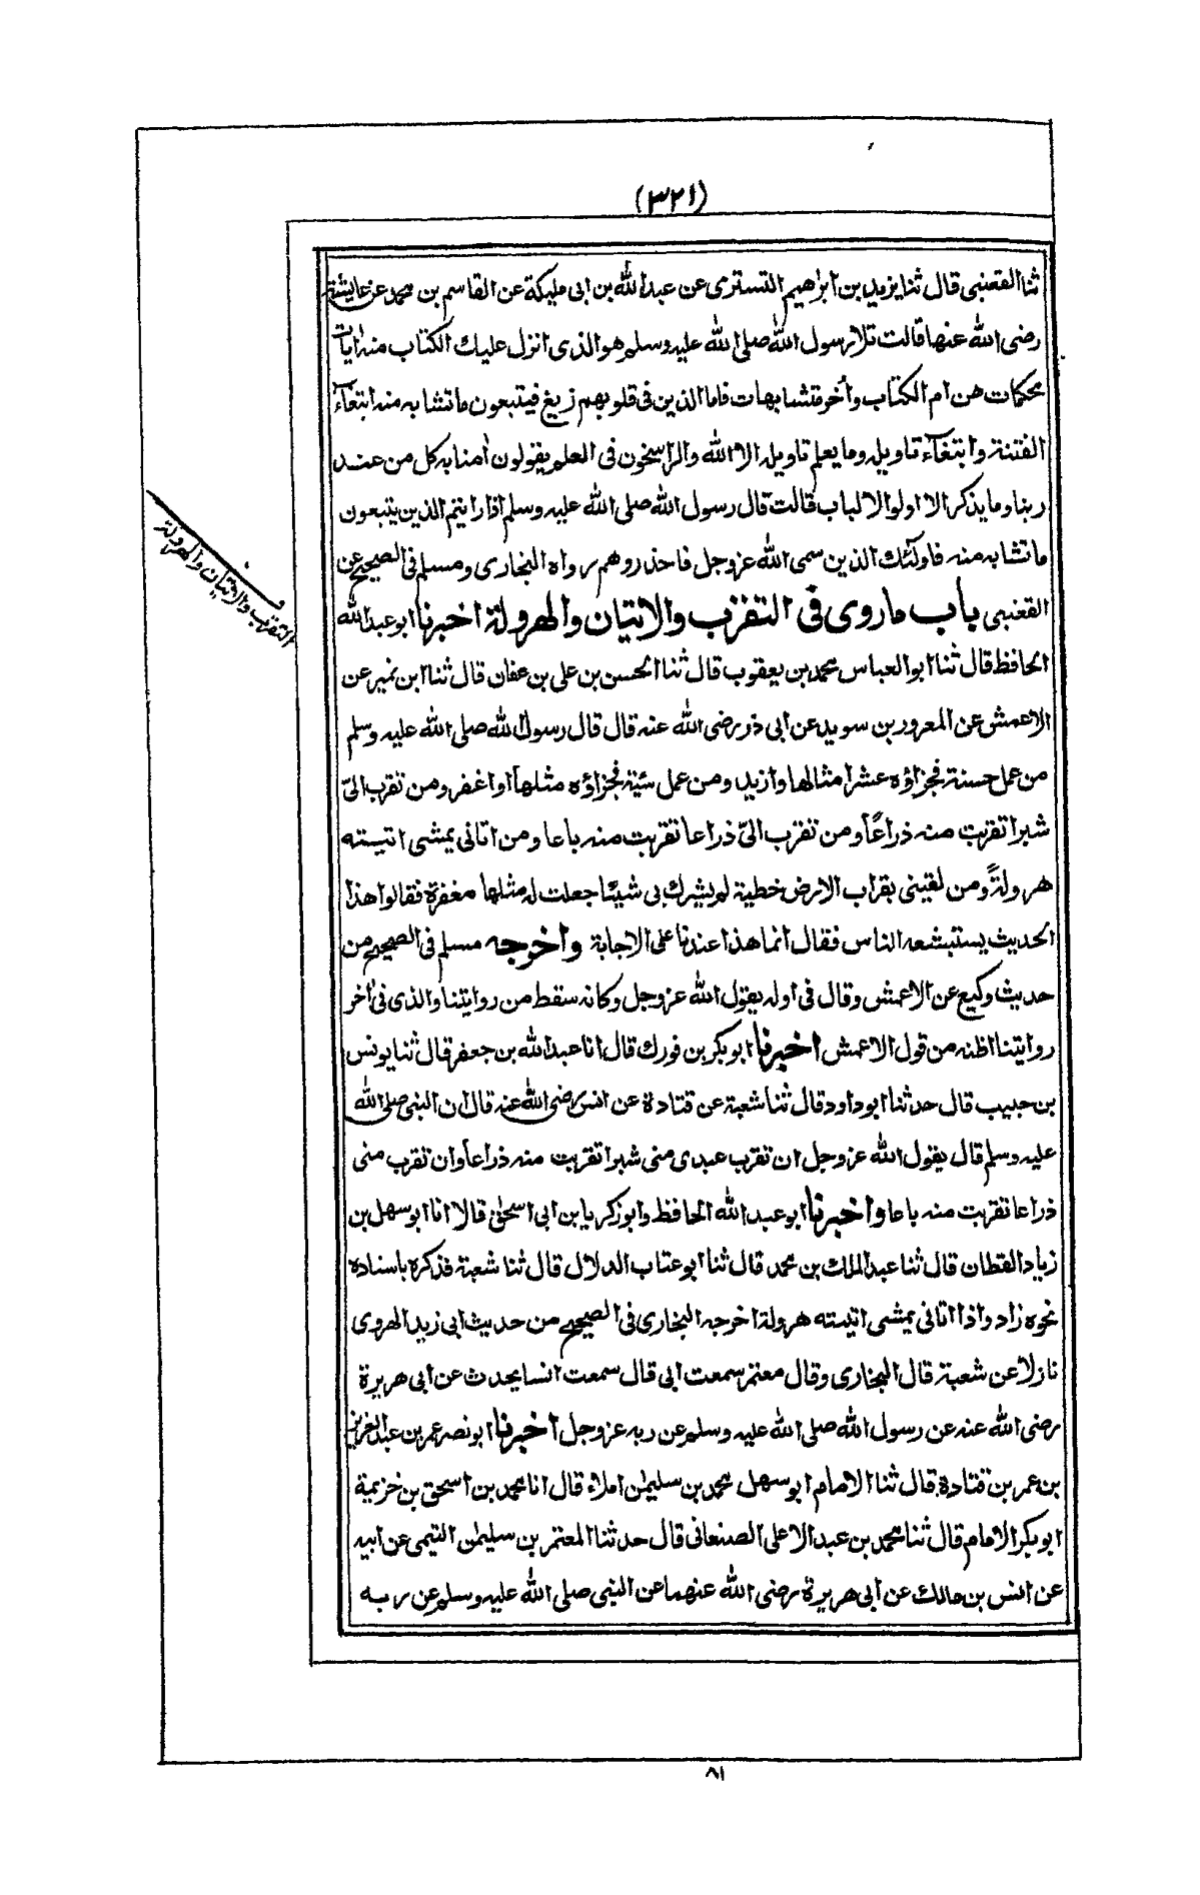 (٣٢١)
ثنا القعنبى قال ثنا يزيد بن ابراهيم التسترى عن عبد الله بن ابى مليكة عن القاسم بن محمد عن عايشة
رضى الله عنها قالت تلا رسول الله صلى الله عليه وسلم هو الذى انزل عليك الكتاب منه أيات
محكمات هن ام الكتاب وأخر متشابهات فاما الذين فى قلوبهم زيغ فيتبعون ما تشابه منه ابتغاء
الفتنة وابتغاء تاويله وما يعلم تاويله الا الله والراسخون فى العلم يقولون أمنا به كل من عند
ربنا وما يذكر الا اولوا الالباب قالت قال رسول الله صلى الله عليه وسلم اذا رايتم الذين يتبعون
ما تشابه منه فاولئك الذين سمى الله عز وجل فاحذروهم رواه البخارى ومسلم فى الصحيح عن
القعنبى باب ما روى فى التقرب والاتيان والهرولة اخبرنا ابو عبد الله
الحافظ قال ثنا ابو العباس محمد بن يعقوب قال ثنا الحسن بن على بن عفان قال ثنا ابن نمير عن
الاعمش عن المعرور بن سويد عن ابى ذر رضى الله عنه قال قال رسول الله صلى الله عليه وسلم
من عمل حسنة فجزاؤه عشر امثالها وازيد ومن عمل سئية فجزاؤه مثلها او اغفر ومن تقرب الىّ
شبرا تقربت منه ذراعًا ومن تقرب الىّ ذراعا تقربت منه باعا ومن اتانى يمشى اتيته
هرولةً ومن لقينى بقراب الارض خطية لم يشرك بى شيئا جعلت له مثلها مغفرة فقالوا هذا
الحديث يستبشعه الناس فقال انما هذا عندنا على الاجابة واخرجه مسلم فى الصحيح من
حديث وكيع عن الاعمش وقال فى اوله يقول الله عز وجل وكانه سقط من روايتنا والذى فى أخر
روايتنا اظنه من قول الاعمش اخبرنا ابو بكر بن فورك قال انا عبد الله بن جعفر قال ثنا يونس
بن حبيب قال حدثنا ابو داود قال ثنا شعبة عن قتادة عن انس رضى الله عنه قال ان النبى صلى الله
عليه وسلم قال يقول الله عز وجل ان تقرب عبدى منى شبرا تقربت منه ذراعا وان تقرب منى
ذراعا تقربت منه باعا واخبرنا ابو عبد الله الحافظ وابو زكريا بن ابى اسحق قالا انا ابو سهل بن
زياد القطان قال ثنا عبد الملك بن محمد قال ثنا ابو عتاب الدلال قال ثنا شعبة فذكره باسناده
نحوه زاد واذا اتانى يمشى اتيته هرولة اخرجه البخارى فى الصحيح من حديث ابى زيد الهروى
نازلا عن شعبة قال البخارى وقال معتمر سمعت ابى قال سمعت انسا يحدث عن ابى هريرة
رضى الله عنه عن رسول الله صلى الله عليه وسلم عن ربه عز وجل اخبرنا ابو نصر عمر بن عبد العزيز
بن عمر بن قتادة قال ثنا الامام ابو سهل محمد بن سليمن املاء قال انا محمد بن اسحق بن خزيمة
ابو بكر الامام قال ثنا محمد بن عبد الاعلى الصنعانى قال حدثنا المعتمر بن سليمن التيمى عن ابيه
عن انس بن مالك عن ابى هريرة رضى الله عنهما عن النبى صلى الله عليه وسلم عن ربه
التقرب والاتيان والهرولة
٨١